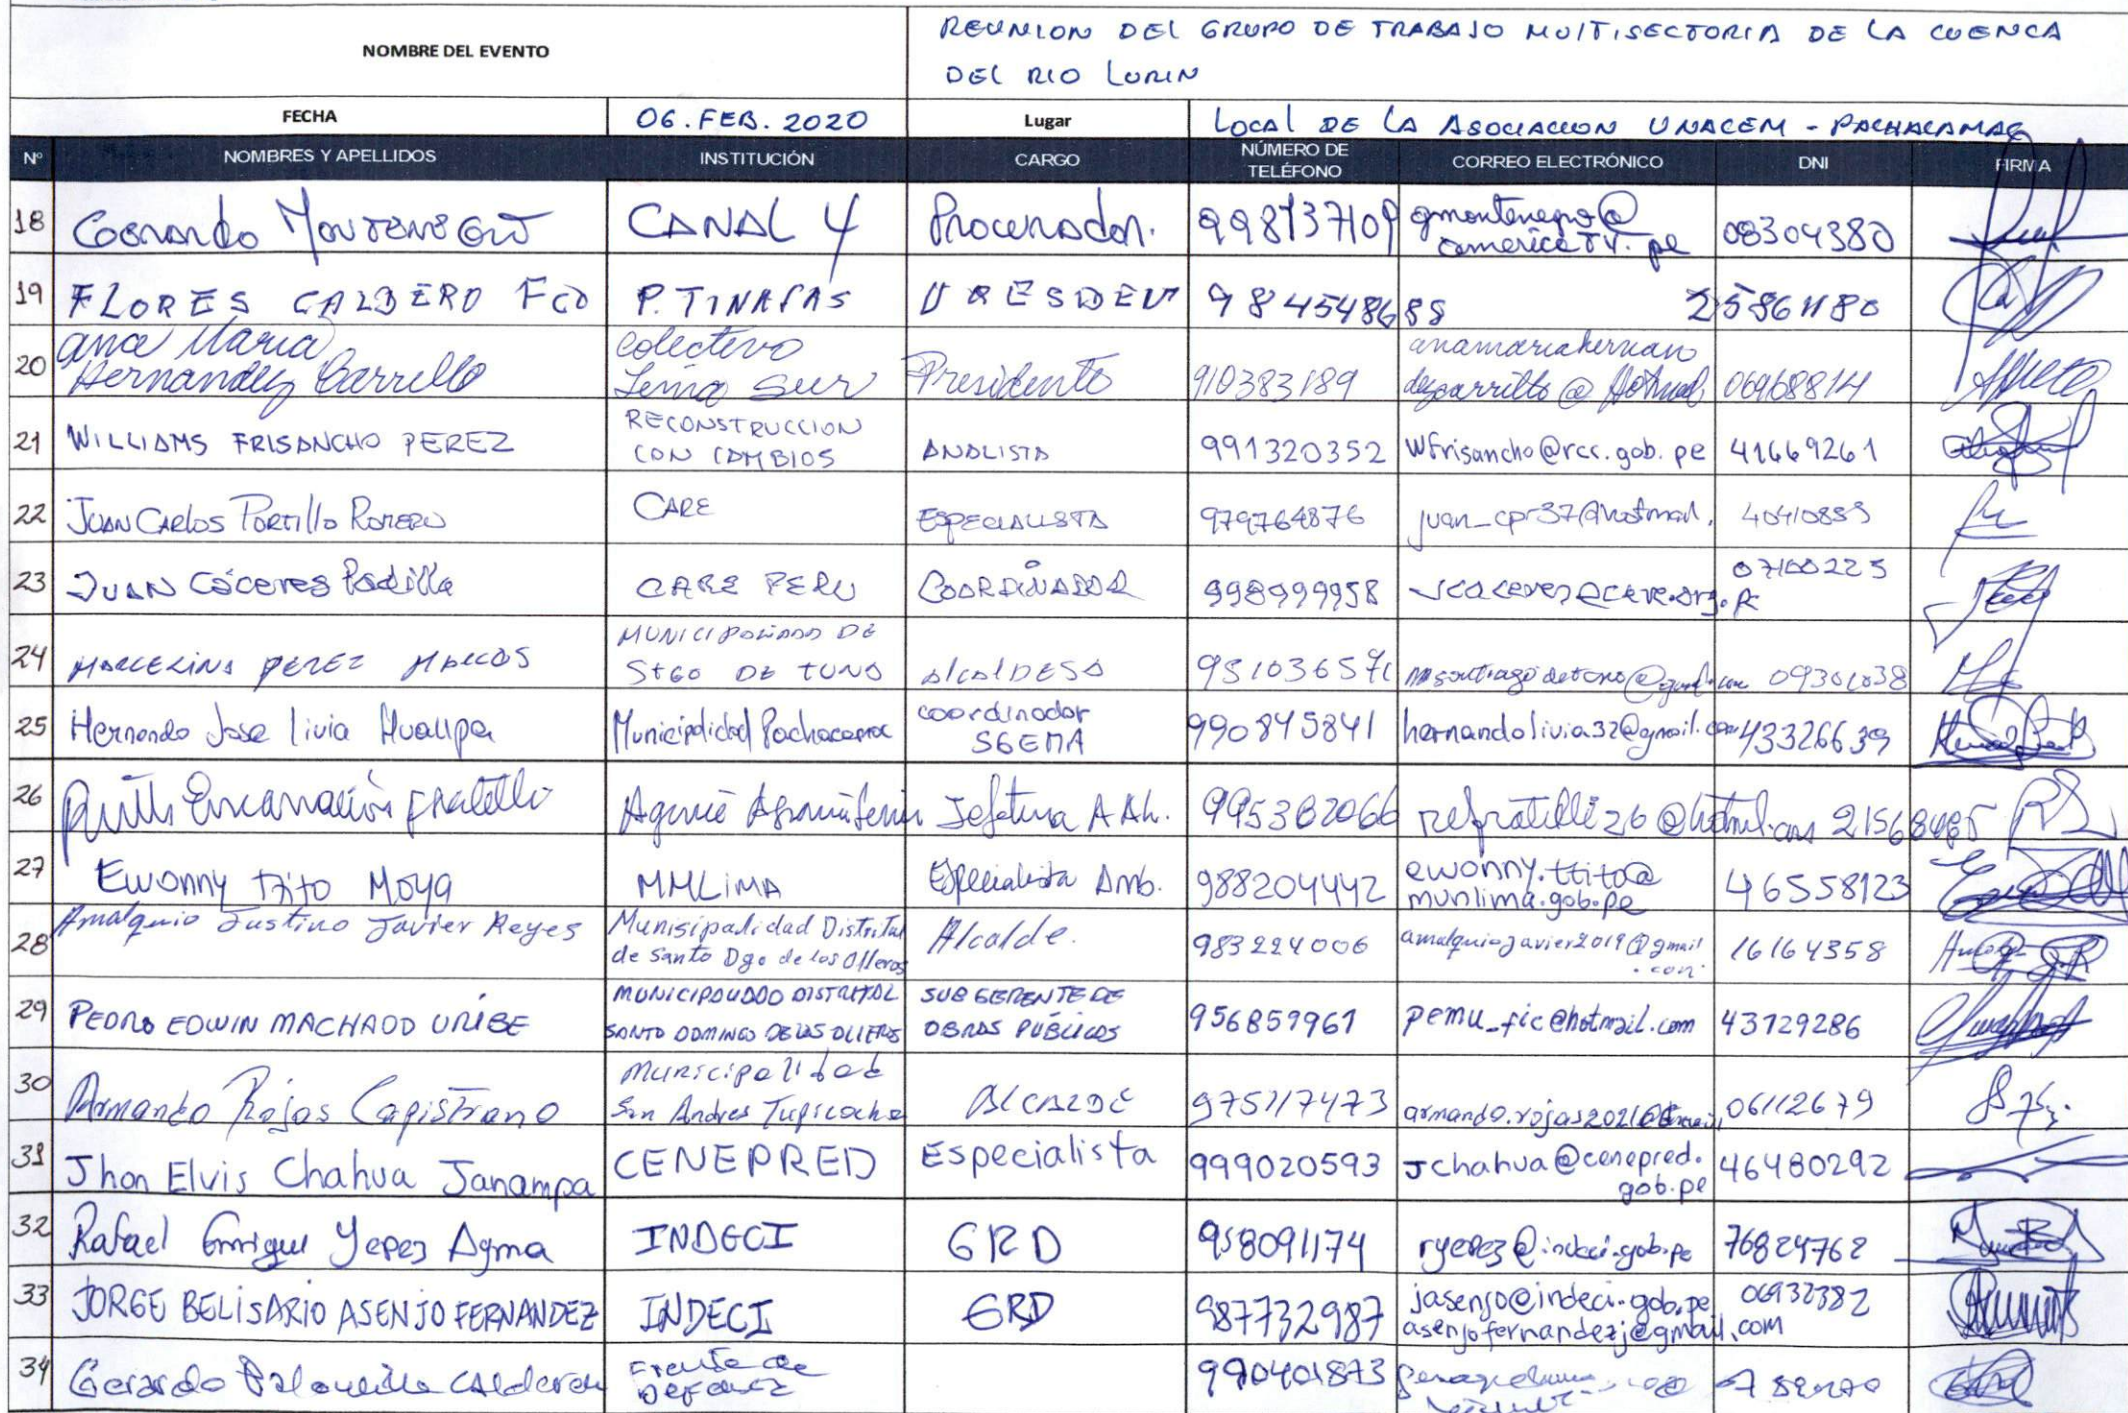 NOMBRE DEL EVENTO
REUNION DEL GRUPO DE TRABAJO MULTISECTORIA DE LA CUENCA
DEL RIO LURIN
FECHA 06.FEB.2020 Lugar LOCAL DE LA ASOCIACCION UNACEM - PACHACAMAC
Nº NOMBRES Y APELLIDOS INSTITUCIÓN CARGO NÚMERO DE TELÉFONO CORREO ELECTRÓNICO DNI FIRMA
18 CANAL 4 Procurador. 998137109 gmontenegro@
americatv.pe 08304380
19 FLORES CALDERO Fco P. TINAJAS 984548688
20 Ana Maria Hernandez Carrillo Colectivo
Lima Sur Presidente 910383189
21 WILLIAMS FRISANCHO PEREZ RECONSTRUCCION
CON CAMBIOS ANALISTA 991320352 wfrisancho@rcc.gob.pe 41669261
22 JUAN CARLOS PORTILLO ROMERO CARE ESPECIALISTA 979764876 juan_cpr37@hotmail.
23 JUAN Cáceres Padilla CARE PERU COORDINADOR 998999958 07100225
24 MARCELINA PEREZ MARCOS MUNICIPALIDAD DE
STGO DE TUNA AlcalDESA 951036571
25 Hernando Jose Livia Huallpa Municipalidad Pachacamac coordinador
SGEMA 990845841 hernandolivia32@gmail.com 43326639
26 Ruth Encarnación Fratelli 995382066
27 Ewonny Ttito Moya MMLIMA Especialista Amb. 988204442 ewonny.ttito@
munlima.gob.pe 46558123
28 Amalquio Justino Javier Reyes Munisipalidad Distrital
de Santo Dgo de los Olleros Alcalde. 983224006 amalquiojavier2019@gmail
.com 16164358
29 PEDRO EDWIN MACHADO URIBE MUNICIPALIDAD DISTRITAL
SANTO DOMINGO DE LOS OLLEROS SUB GERENTE DE
OBRAS PÚBLICAS 956859961 pemu_fic@hotmail.com 43729286
30 Armando Rojas Capistrano Municipalidad
San Andres Tupicocha ALCALDE 975117473 06112679
31 Jhon Elvis Chahua Janampa CENEPRED Especialista 999020593 Jchahua@cenepred.
gob.pe 46480292
32 Rafael Enrique Yepez Agma INDECI GRD 958091174 ryepez@indeci.gob.pe 76824762
33 JORGE BELISARIO ASENJO FERNANDEZ INDECI GRD 987732987 jasenjo@indeci.gob.pe
asenjofernandezj@gmail.com 06932382
34 Gerardo Calderon Frente de
Defensa 990401873